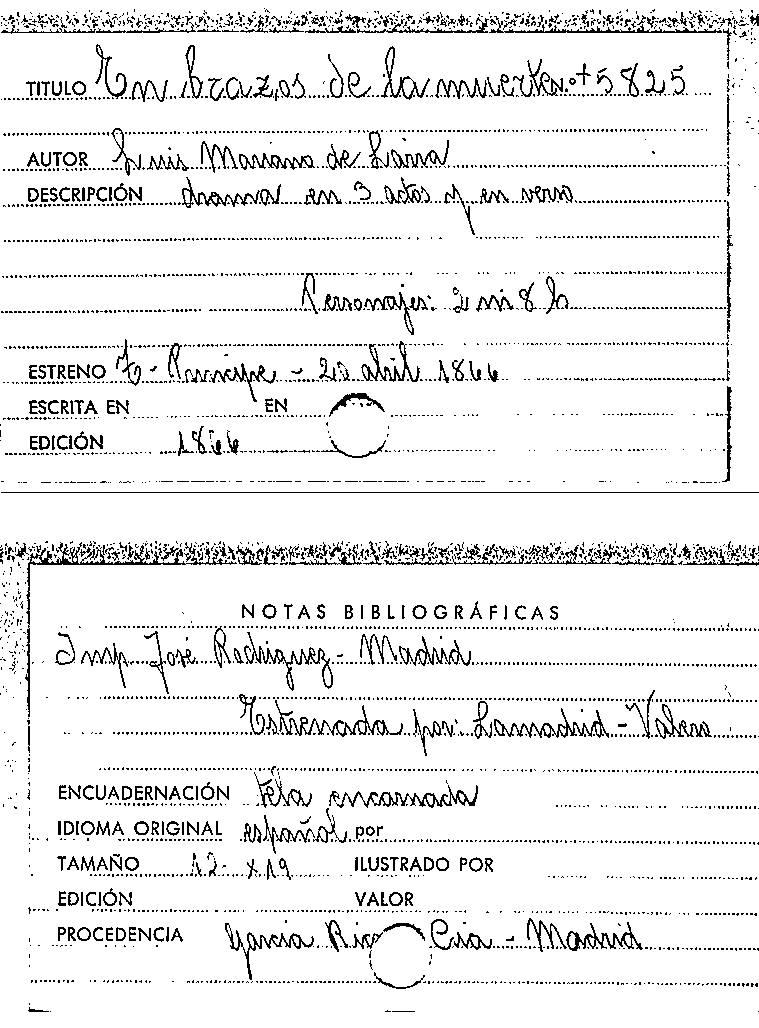 TITULO En brazos de la muerte N.o+ 5825
AUTOR Luis Mariano de Larra
DESCRIPCIÓN drama en 3 actos y en verso
Personajes: 2 m 8 h
ESTRENO To - Principe - 20 abril 1866
ESCRITA EN EN
EDICIÓN 1866
NOTAS BIBLIOGRÁFICAS
Imp. José Rodriguez - Madrid
Estrenada por: Lamadrid - Valero
ENCUADERNACIÓN tela encarnada
IDIOMA ORIGINAL español por
TAMAÑO 12 x 19 ILUSTRADO POR
EDICIÓN VALOR
PROCEDENCIA Garcia Rico Cia - Madrid